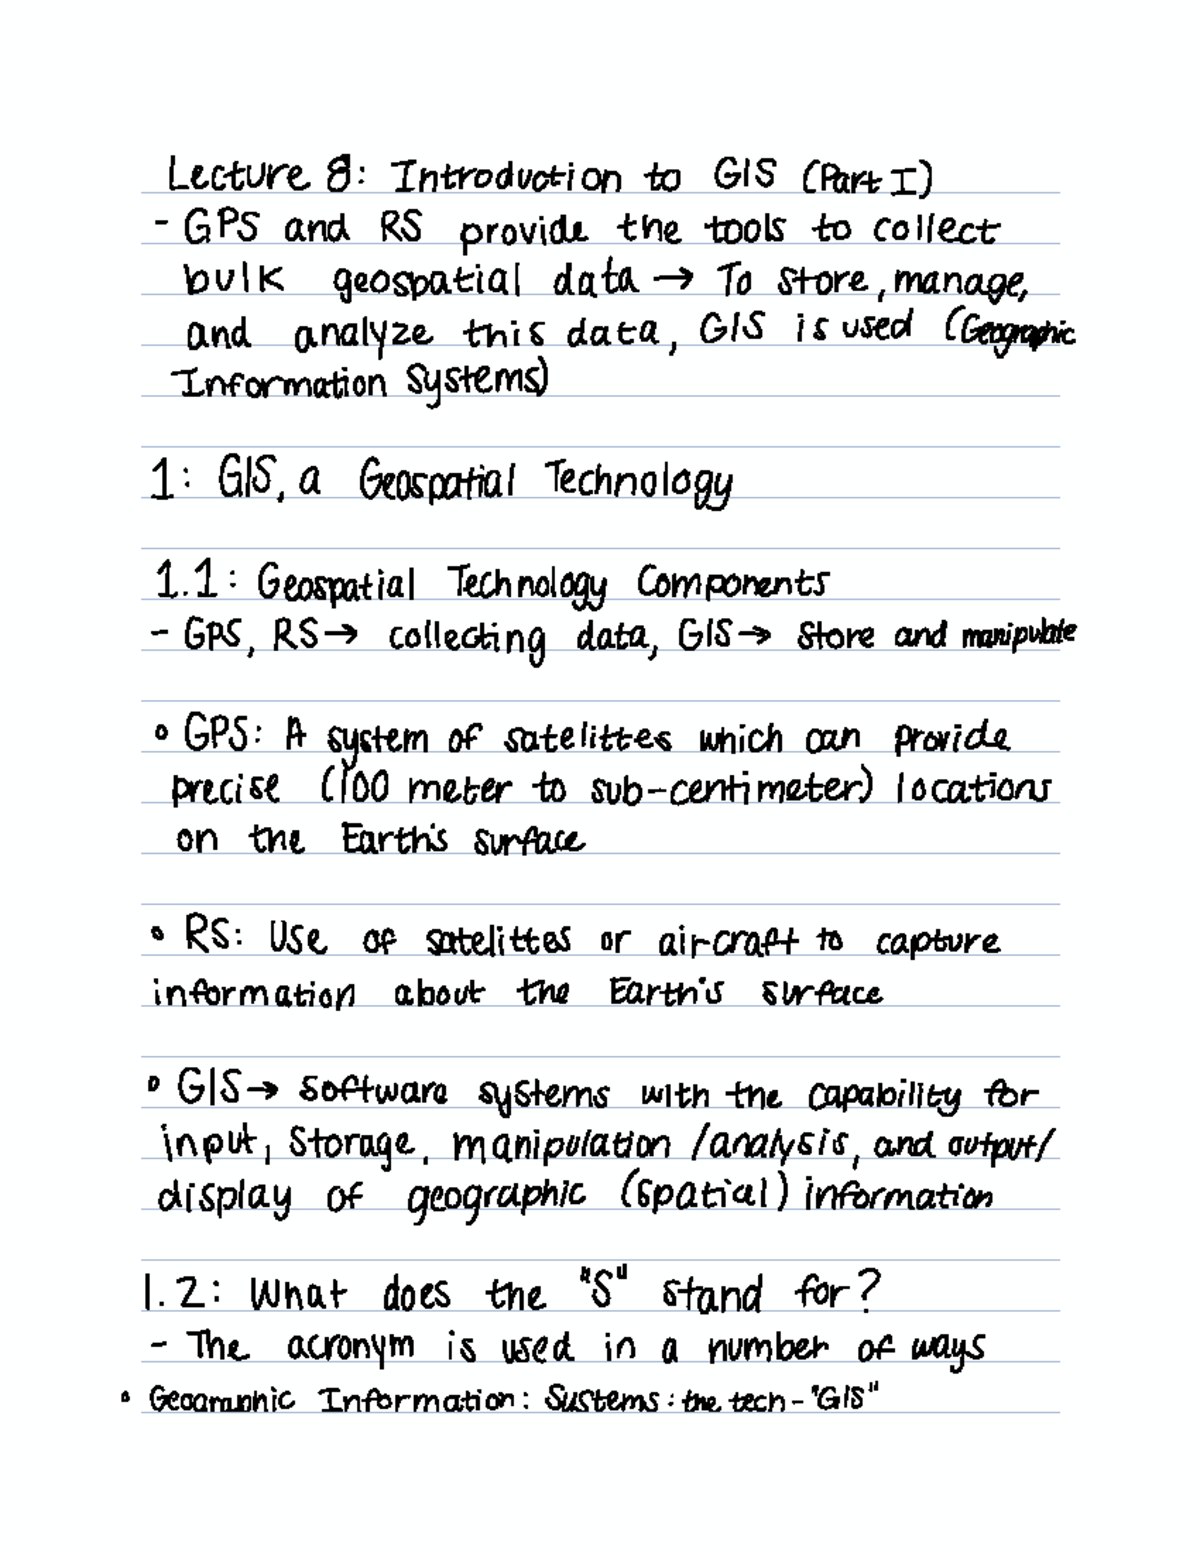 Lecture 8: Introduction to GIS (Part I)
- GPS and RS provide the tools to collect
bulk geospatial data → To store, manage,
and analyze this data, GIS is used (Geographic
Information Systems)
1: GIS, a Geospatial Technology
1.1: Geospatial Technology Components
- GPS, RS → collecting data, GIS → Store and manipulate
∘ GPS: A system of satelittes which can provide
precise (100 meter to sub-centimeter) locations
on the Earth's surface
∘ RS: Use of satelittes or aircraft to capture
information about the Earth's surface
∘ GIS → software systems with the capability for
input, storage, manipulation /analysis, and output/
display of geographic (spatial) information
1.2: What does the "S" stand for?
- The acronym is used in a number of ways
∘ Geographic Information: Systems: the tech - "GIS"